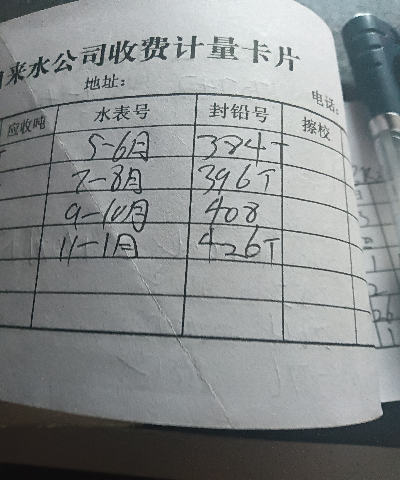 来水公司收费计量卡片
地址：
电话：
应收吨 水表号 封铅号 擦校
5-6月 384T
7-8月 396T
9-10月 408
11-1月 426T